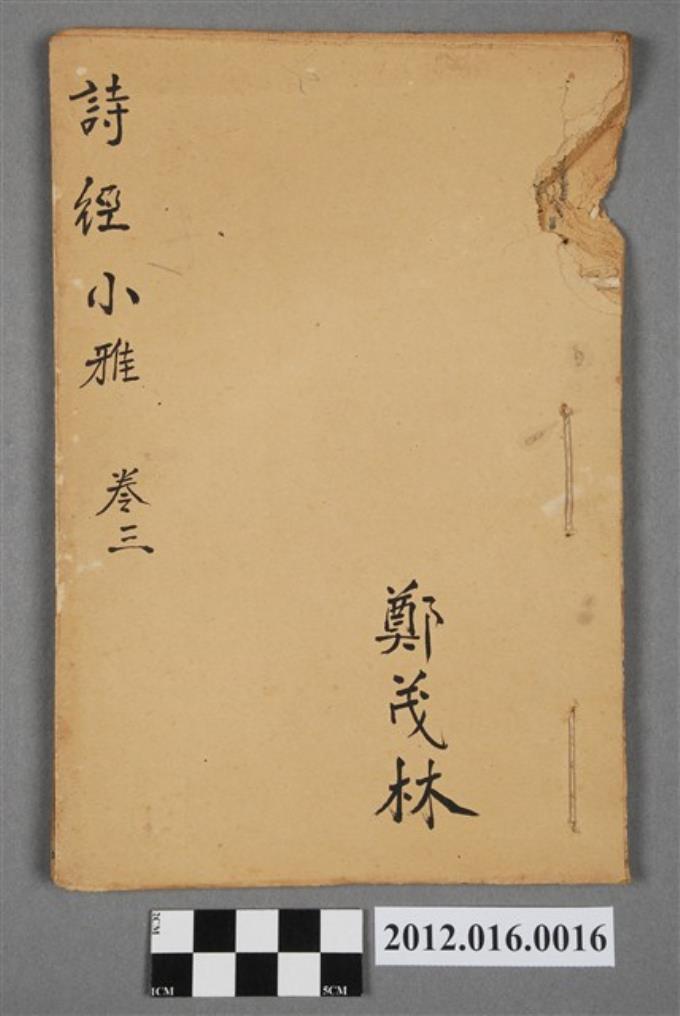 詩經小雅 卷三
鄭茂林
2CM
1CM
5CM
2012.016.0016